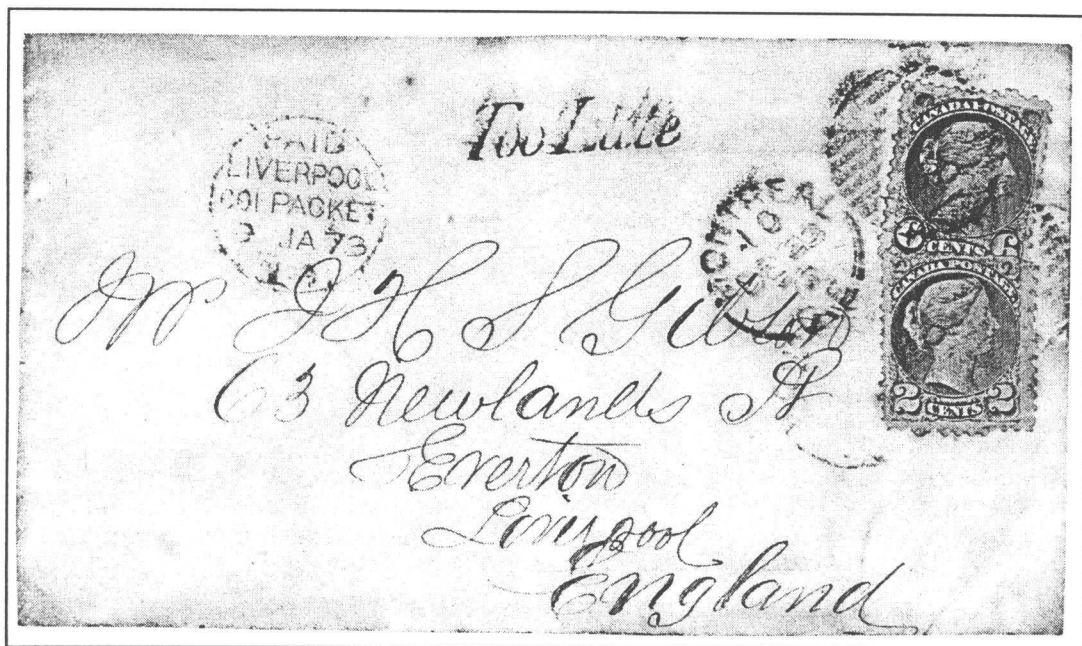 Too Late
PAID
LIVERPOOL
COL PACKET
JA 73
MONTREAL
CANADA POSTAGE
6 CENTS 6
CANADA POSTAGE
2 CENTS 2
Mr J H S Gibson
63 Newlands St
Everton
Liverpool
England